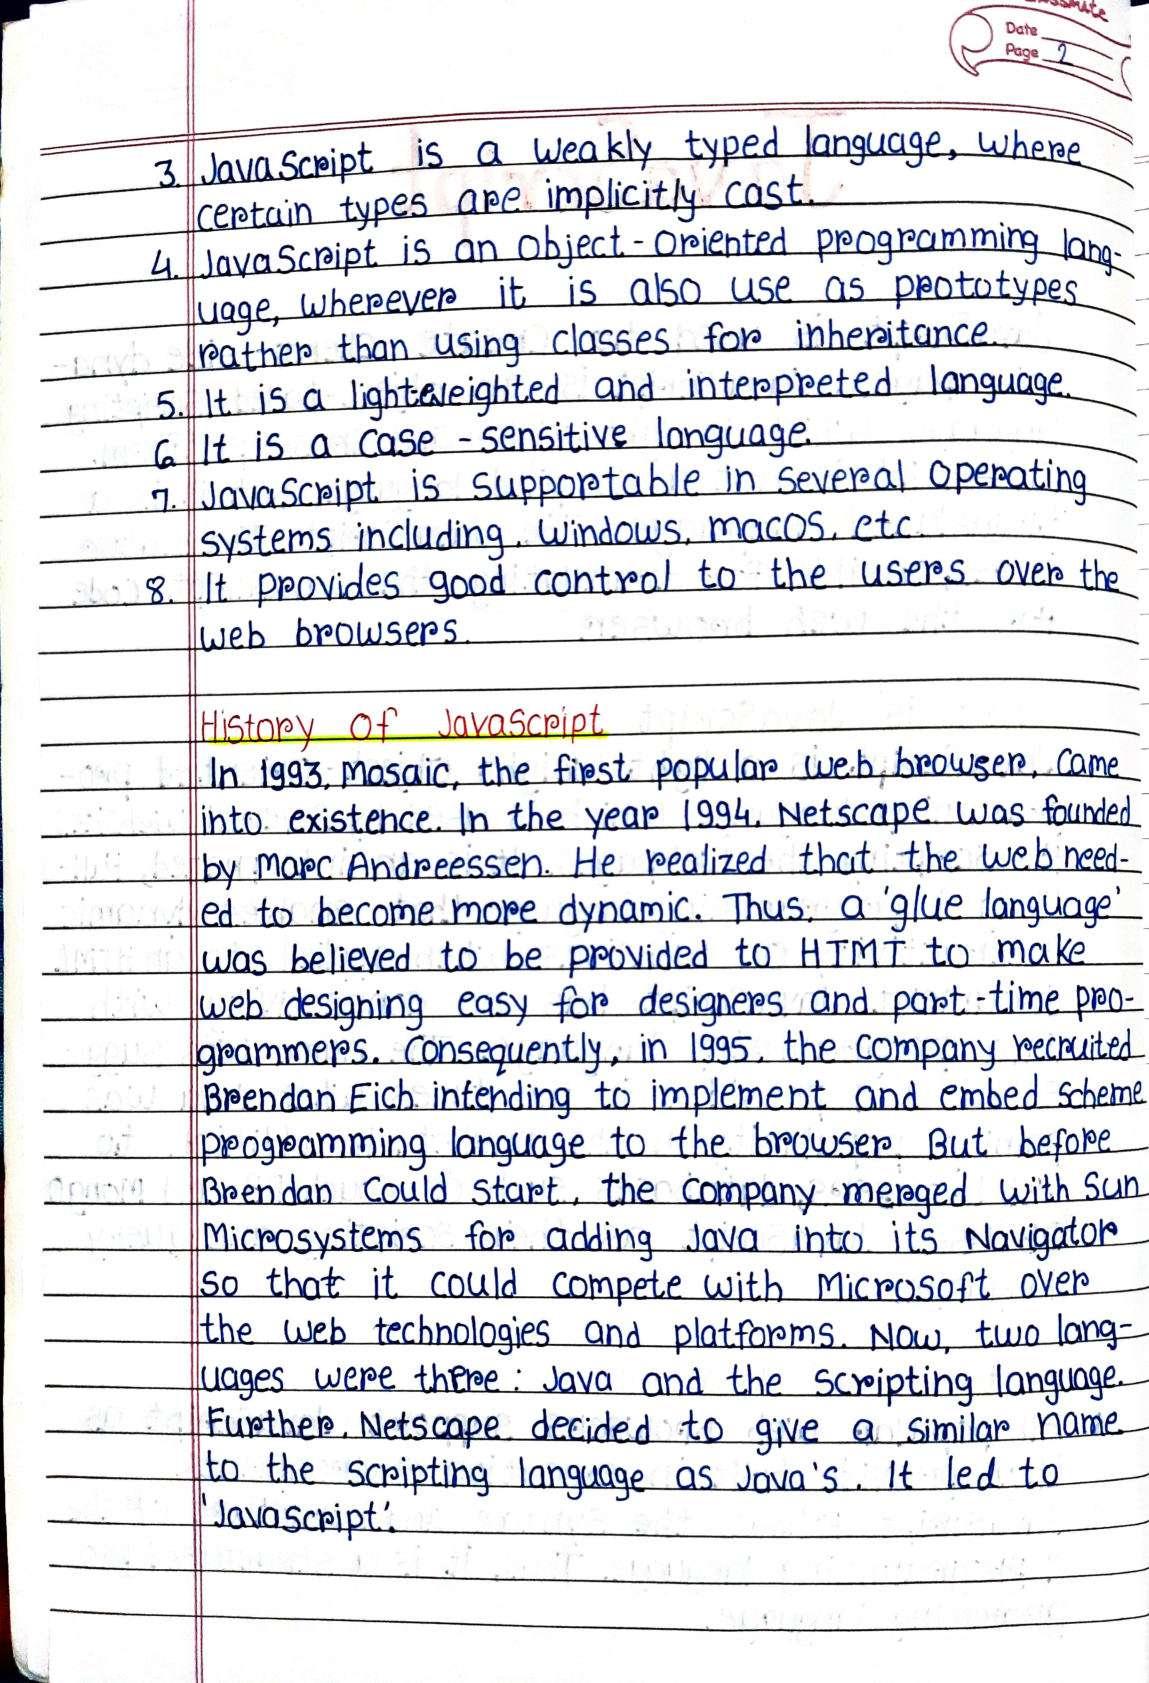 Date
Page 2
3. JavaScript is a weakly typed language, where
certain types are implicitly cast.
4. JavaScript is an object-oriented programming lang-
uage, wherever it is also use as prototypes
rather than using classes for inheritance.
5. It is a lightweighted and interpreted language.
6. It is a case-sensitive language.
7. JavaScript is supportable in several operating
systems including, Windows, macOS, etc.
8. It provides good control to the users over the
web browsers.
History of JavaScript
In 1993, Mosaic, the first popular web browser, came
into existence. In the year 1994, Netscape was founded
by Marc Andreessen. He realized that the web need-
ed to become more dynamic. Thus, a 'glue language'
was believed to be provided to HTMT to make
web designing easy for designers and part-time pro-
grammers. Consequently, in 1995, the company recruited
Brendan Eich intending to implement and embed scheme
programming language to the browser. But before
Brendan could start, the company merged with Sun
Microsystems for adding Java into its Navigator
so that it could compete with Microsoft over
the web technologies and platforms. Now, two lang-
uages were there: Java and the scripting language.
Further, Netscape decided to give a similar name
to the scripting language as Java's. It led to
'Javascript'.